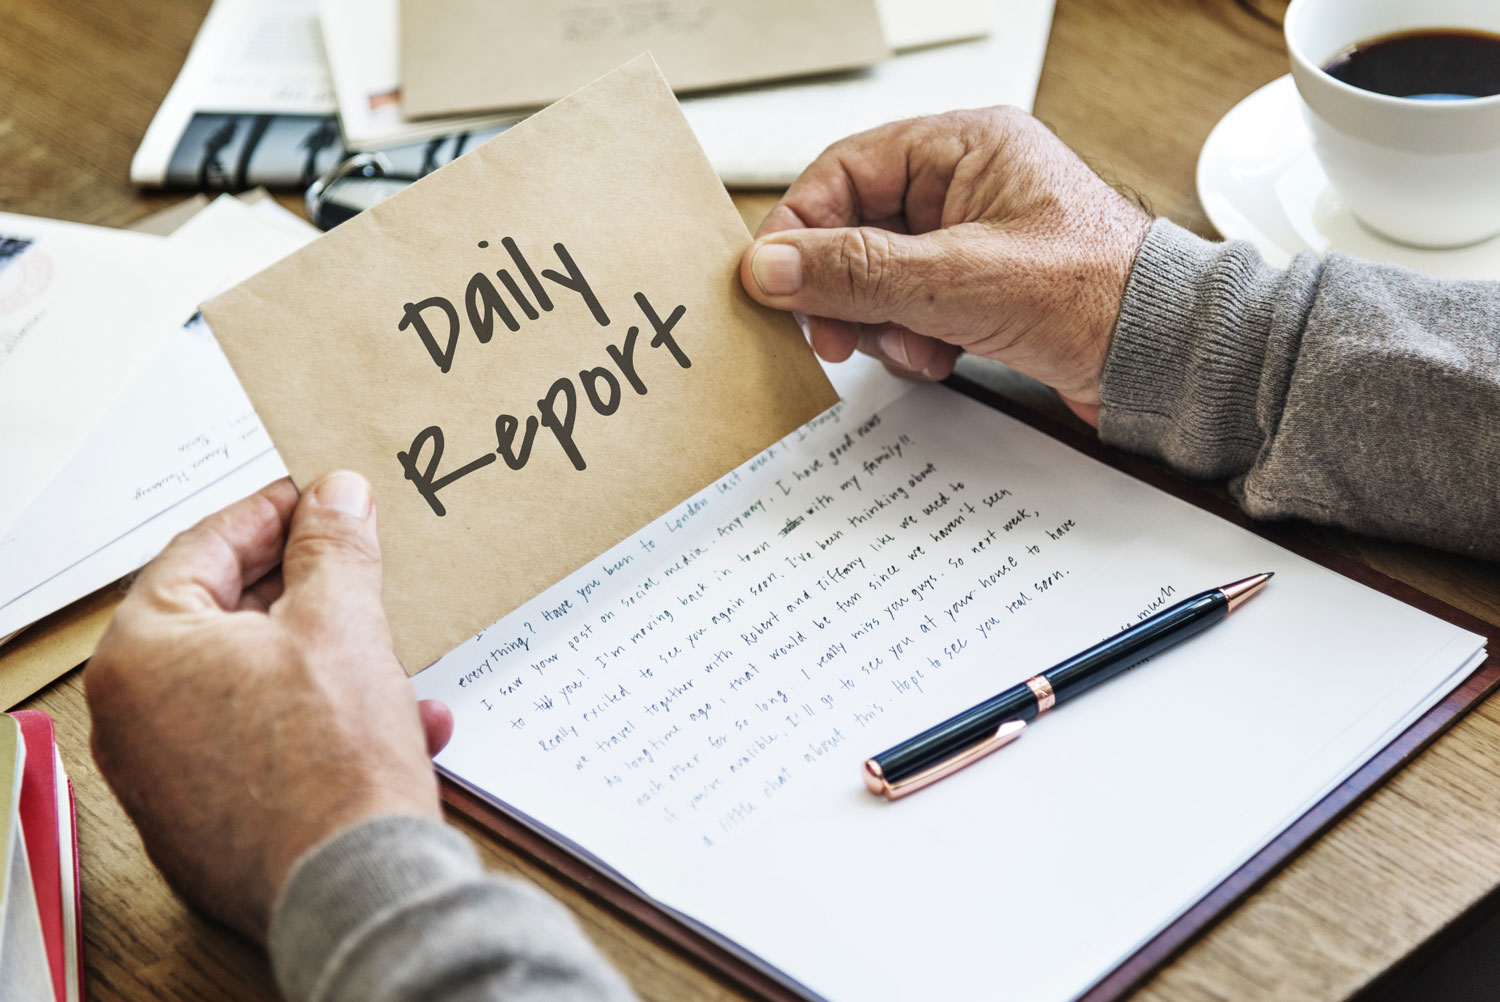 Daily
Report
everything? Have you been to London last week? I thought
I saw your post on social media. Anyway, I have good news
to tell you! I'm moving back in town with my family!!
Really excited to see you again soon. I've been thinking about
we travel together with Robert and Tiffany like we used to
do longtime ago, that would be fun since we haven't seen
each other for so long. I really miss you guys. So next week,
if you're avalible, I'll go to see you at your house to have
a little chat about this. Hope to see you real soon.
so much